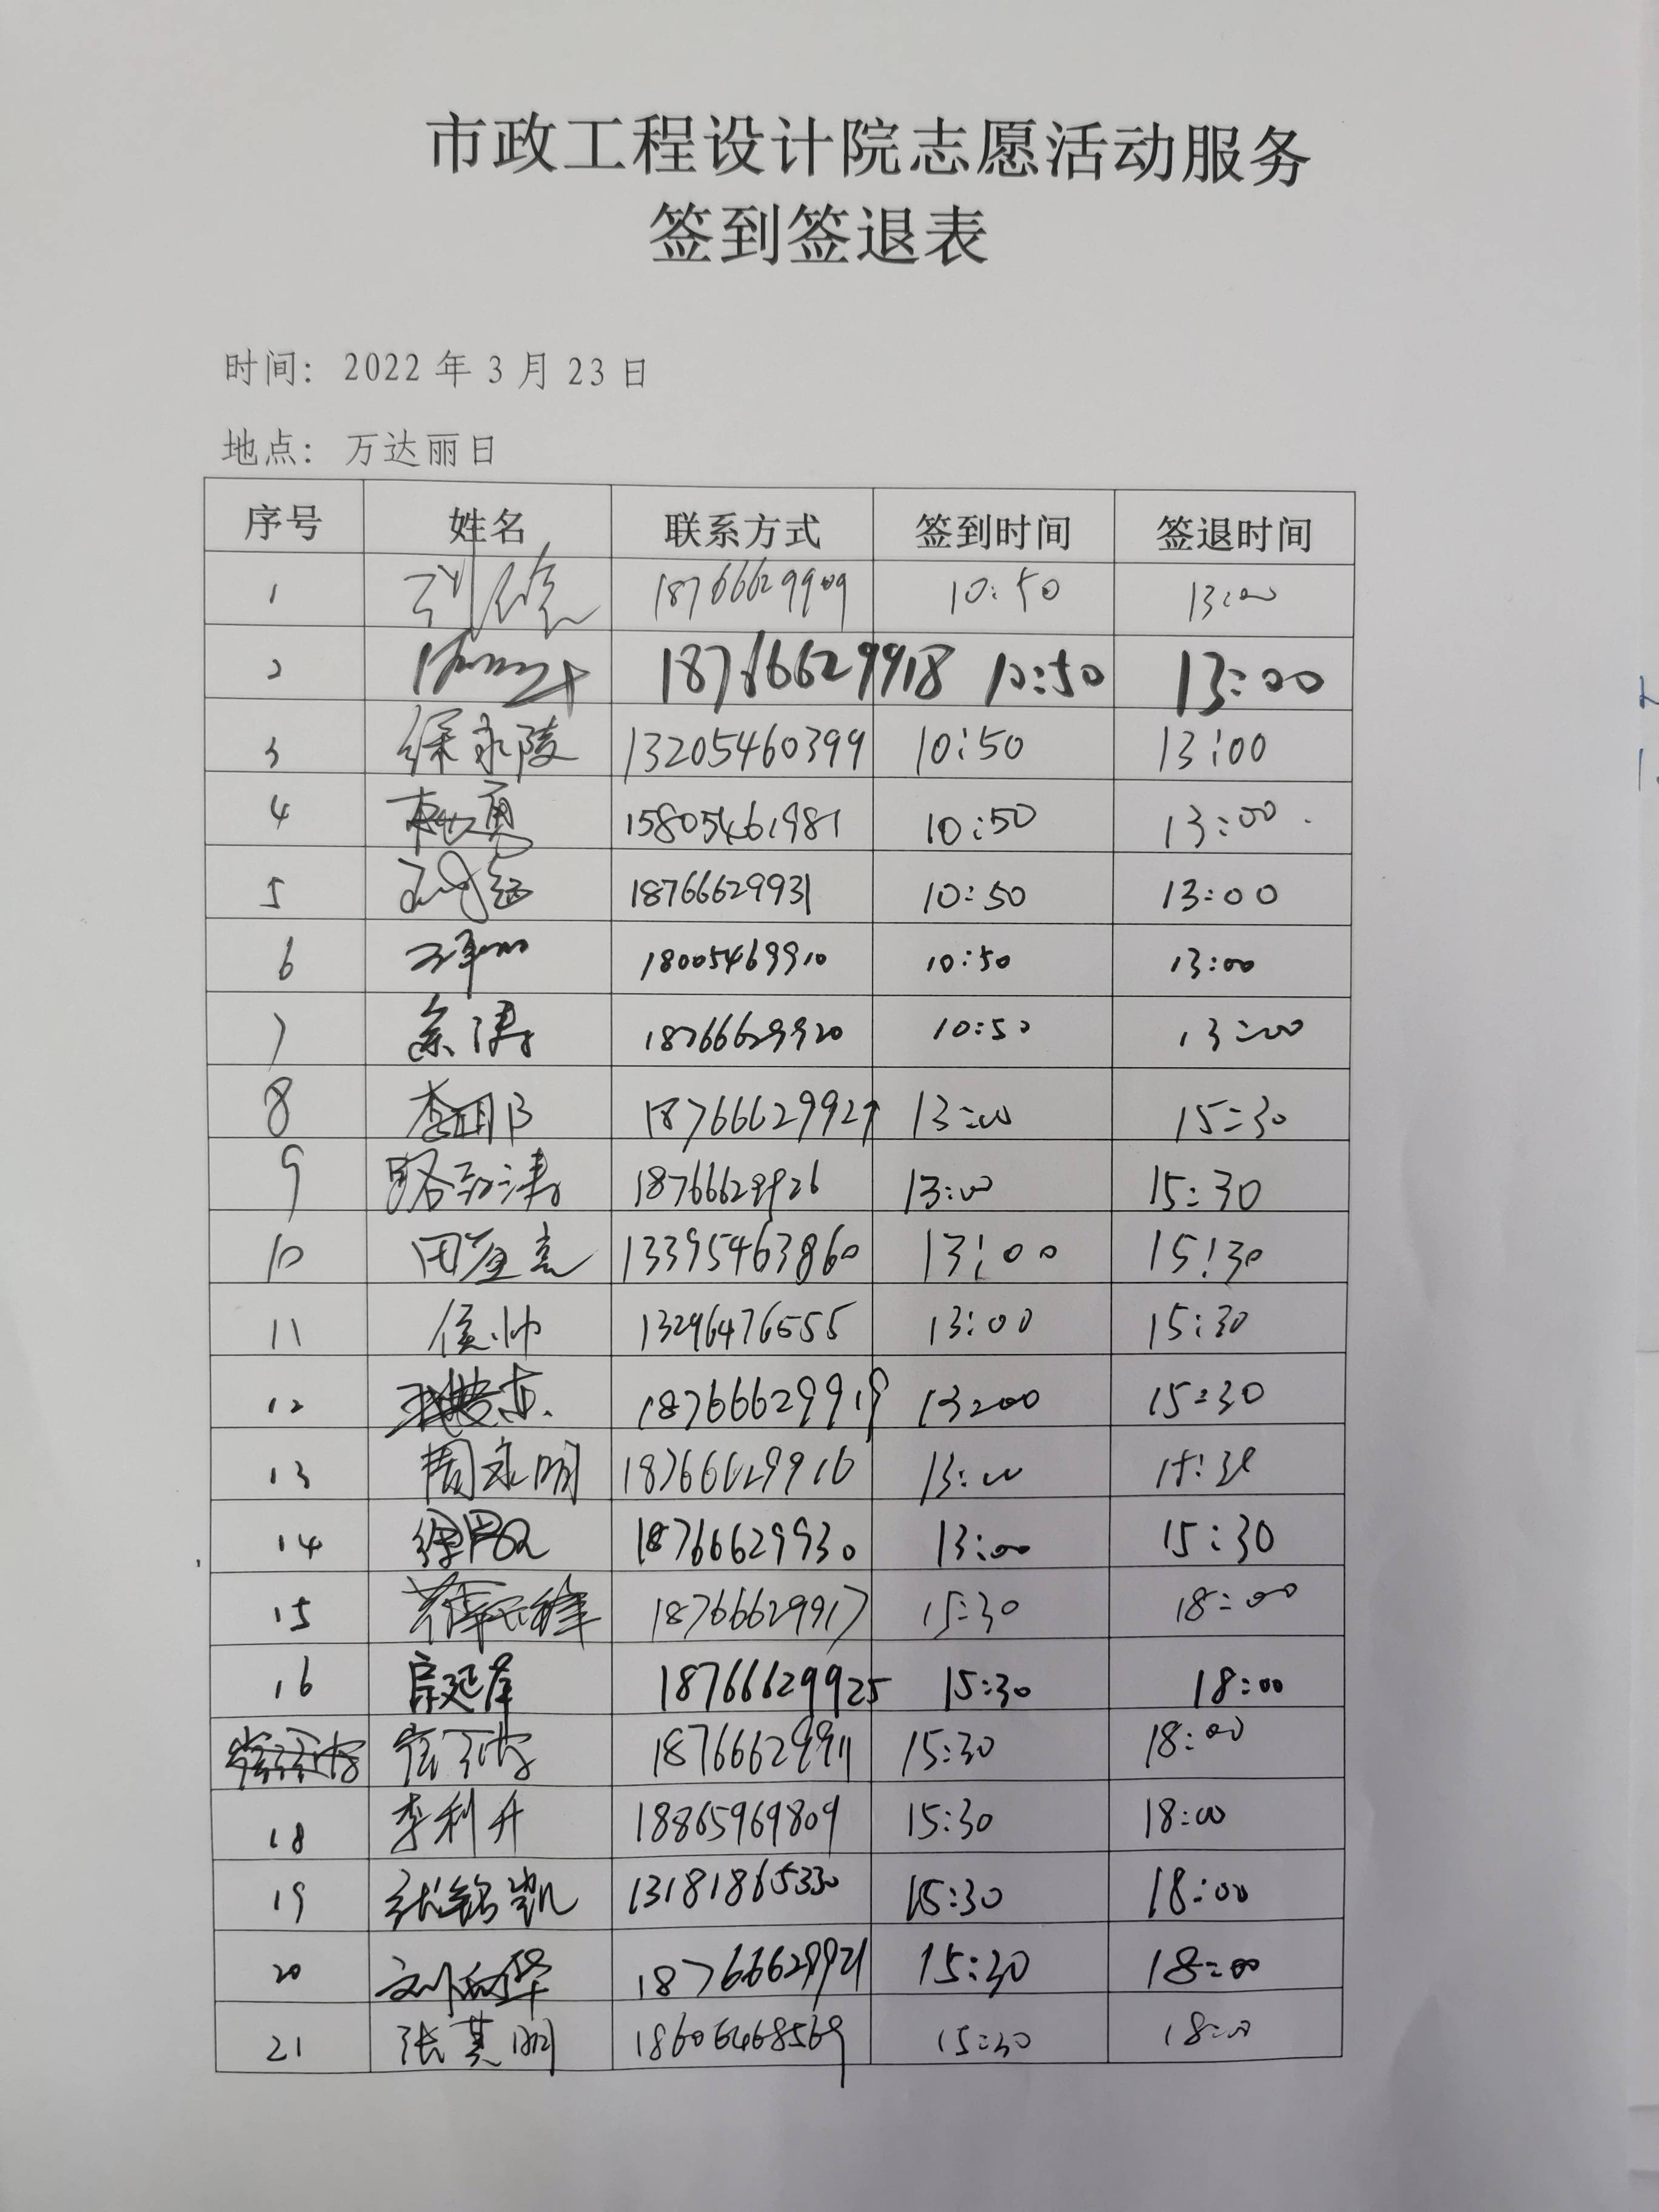 市政工程设计院志愿活动服务
签到签退表
时间：2022 年 3 月 23 日
地点：万达丽日
序号 姓名 联系方式 签到时间 签退时间
1 18766629909 10:50 13:00
2 18766629918 10:50 13:00
3 徐永陵 13205460399 10:50 13:00
4 15805461981 10:50 13:00
5 18766629931 10:50 13:00
6 18005469910 10:50 13:00
7 18766629920 10:50 13:00
8 13:00 15:30
9 18766629926 13:00 15:30
10 13395463860 13:00 15:30
11 侯帅 13296476555 13:00 15:30
12 18766629919 13:00 15:30
13 周永明 18766629916 13:00 15:30
14 18766629930 13:00 15:30
15 18766629917 15:30 18:00
16 18766629925 15:30 18:00
18766629911 15:30 18:00
18 李利升 18865969809 15:30 18:00
19 张铭凯 13181865330 15:30 18:00
20 18766629921 15:30 18:00
21 张其明 18606468569 15:30 18:00